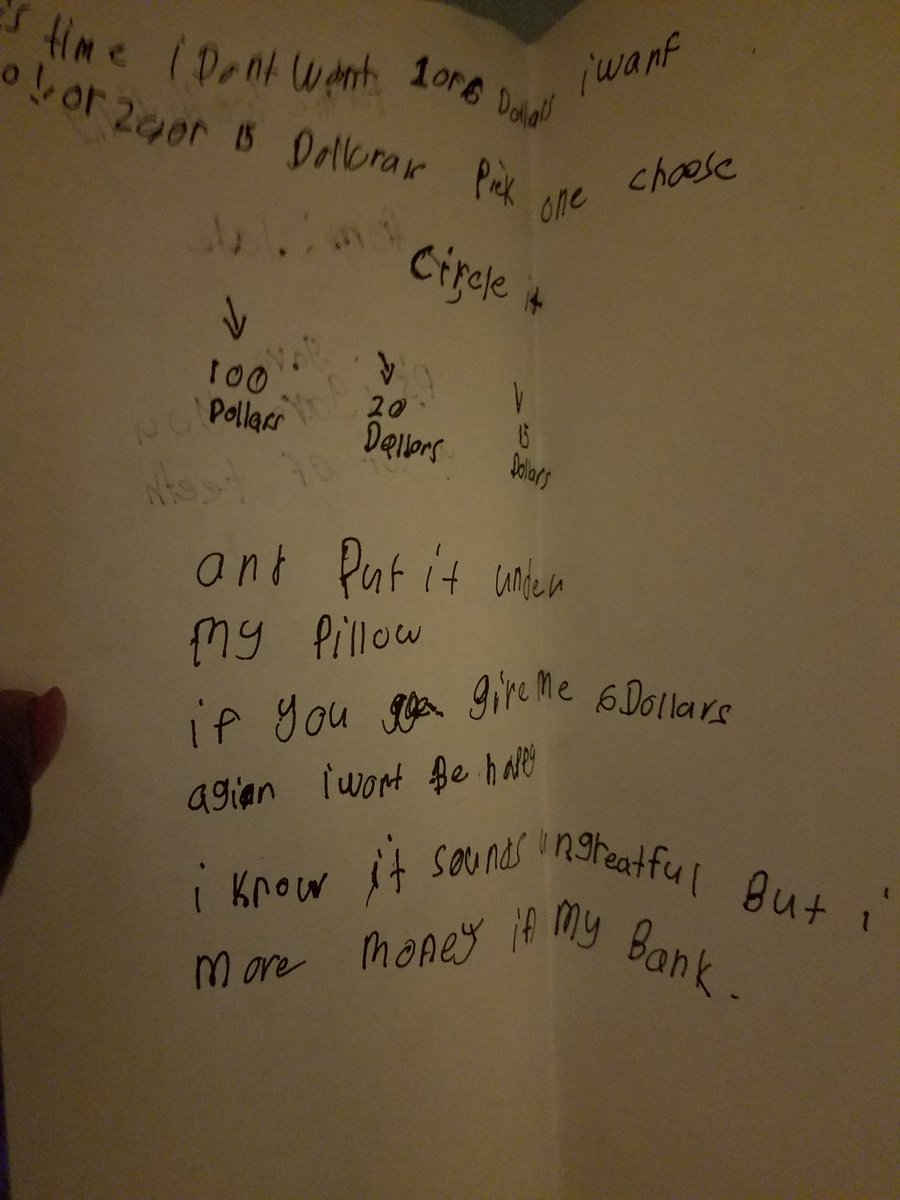 time i Dont Want 1 or 6 Dollars i want
or 20 or 15 Pick one choose
Circle it
100 20 15
Dollars Dollors Dollars
ant Put it under
My Pillow
if you give me 6 Dollars
agian i wont Be happy
i know it sounds ungreatful But i
more money in My Bank.